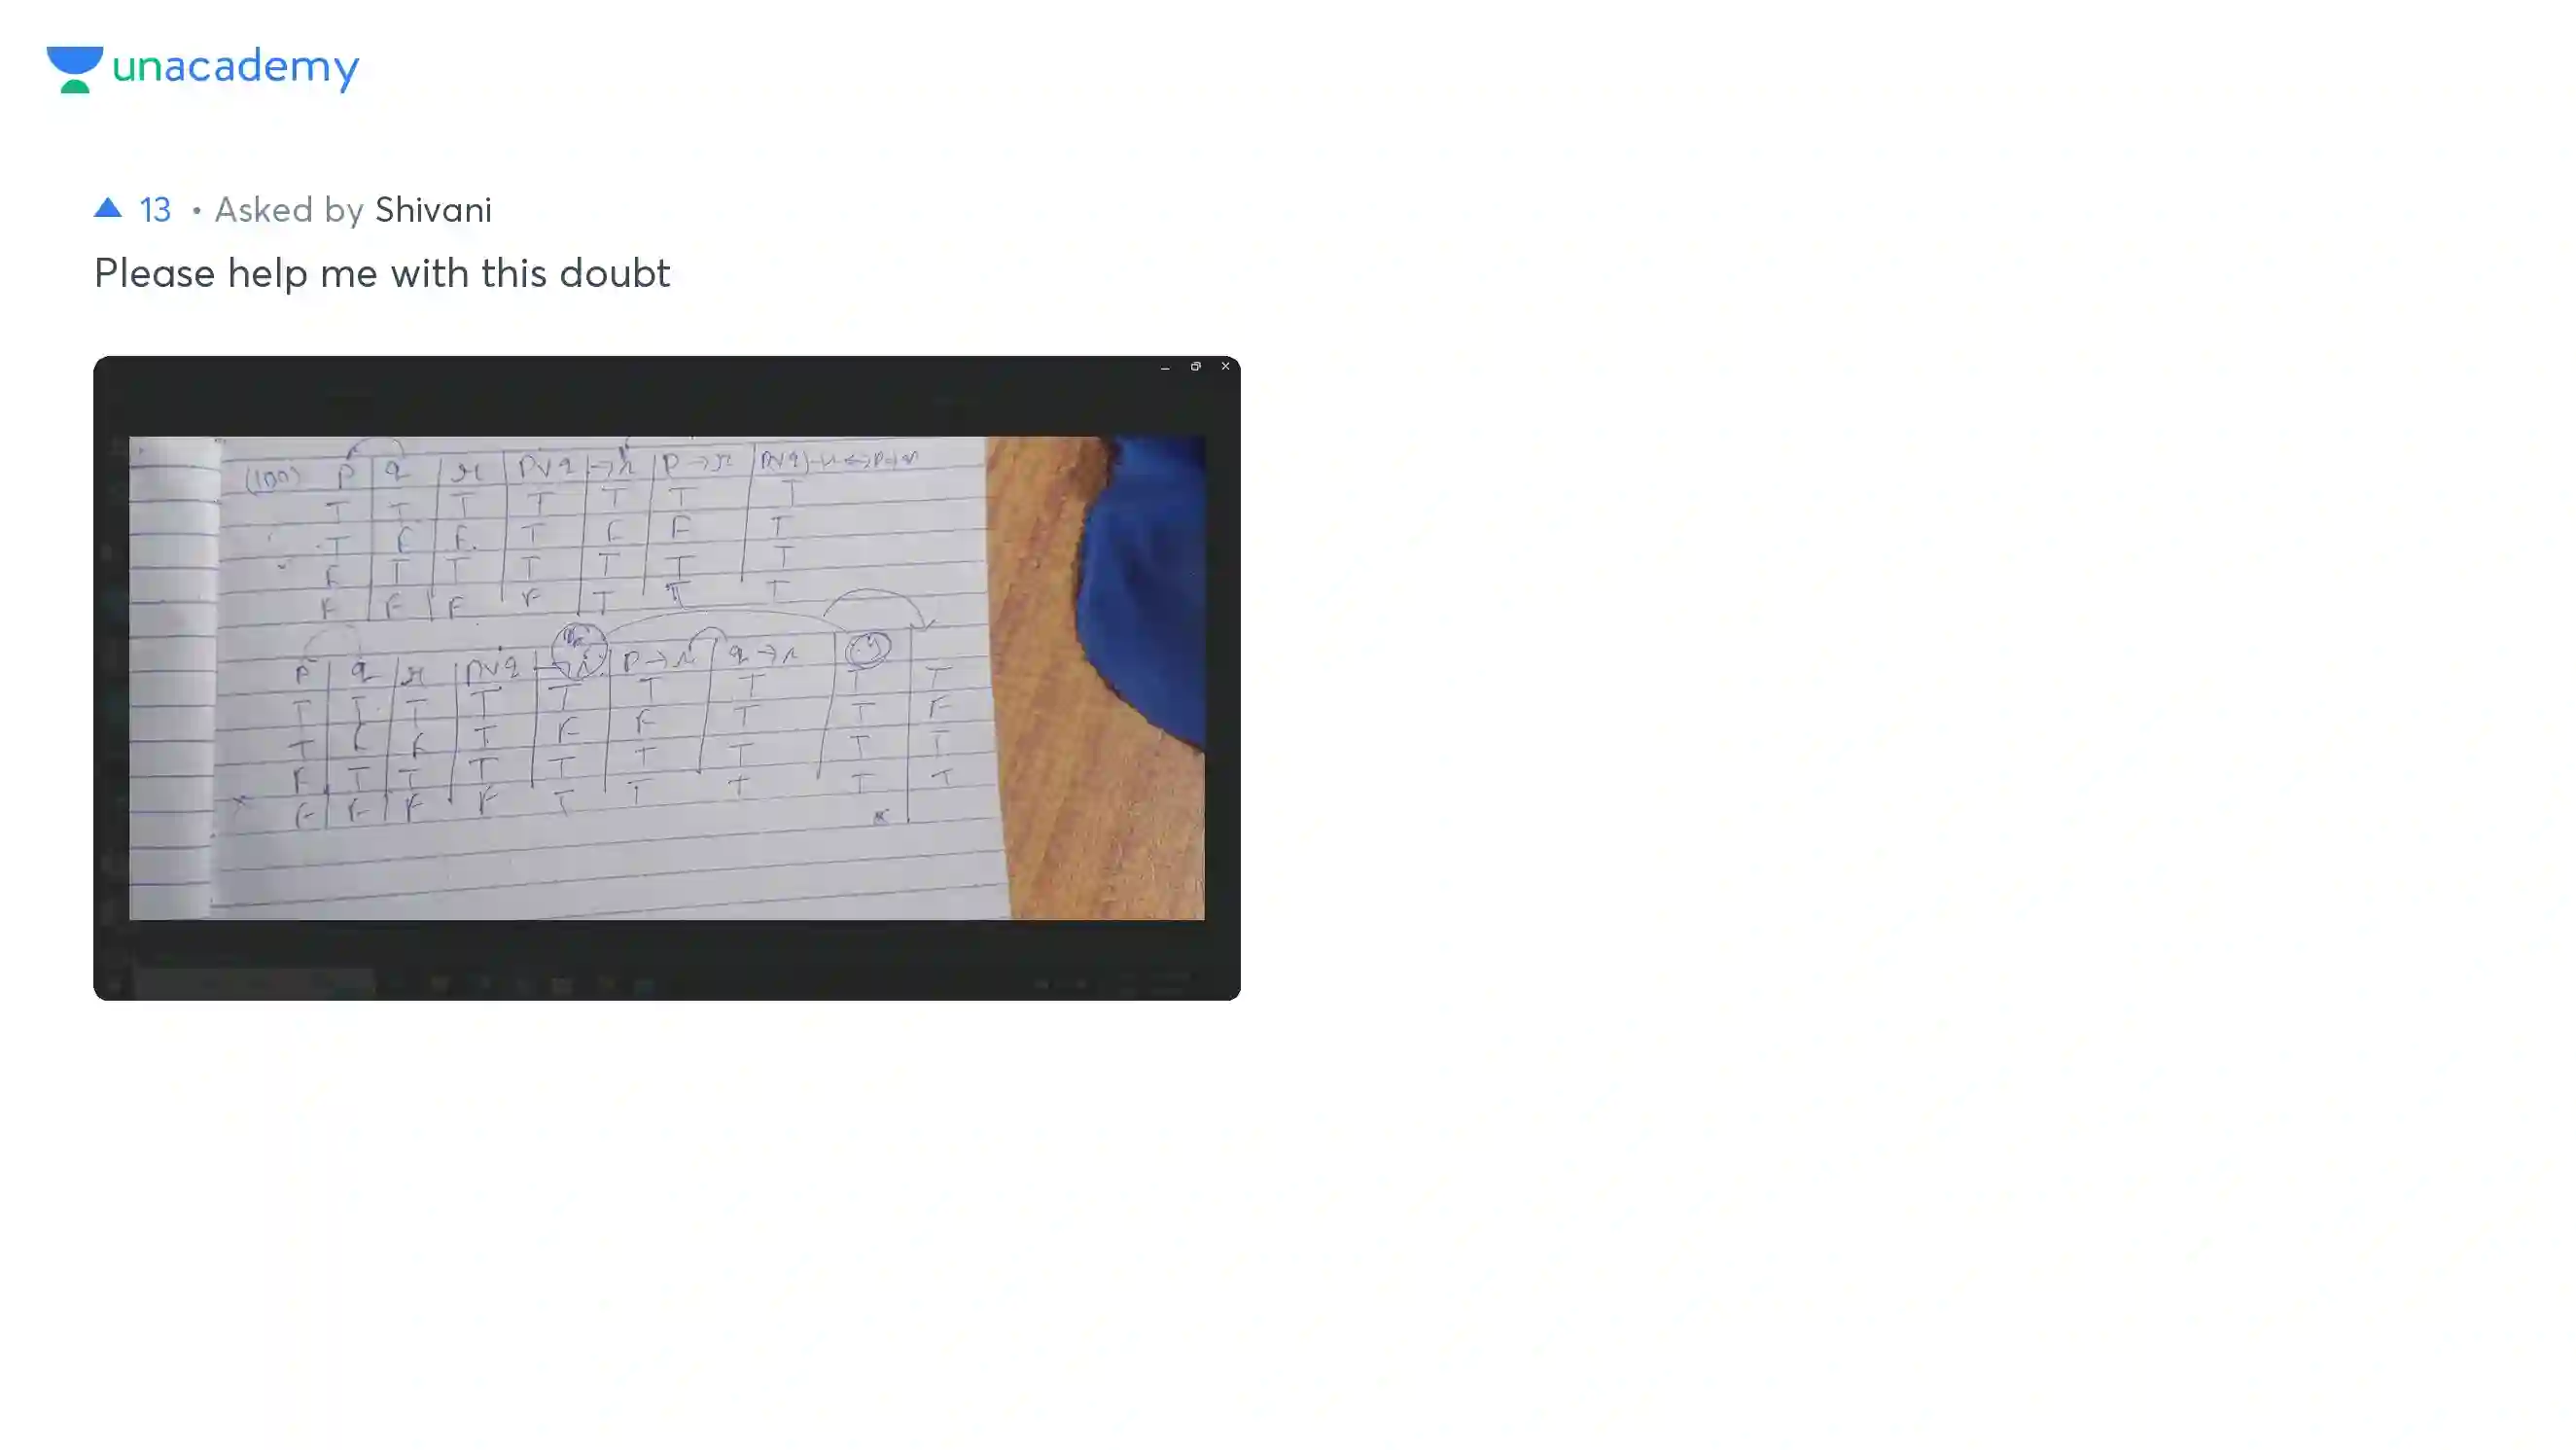 unacademy
13 • Asked by Shivani
Please help me with this doubt
(100) P q r P∨q →r P→r (P∨q)→r↔P→r
T T T T T T T
T F F T F F T
F T T T T T T
F F F F T T T
P q r P∨q →r P→r q→r
T T T T T T T T T
T F F T F F T T F
F T T T T T T T T
F F F F T T T T T